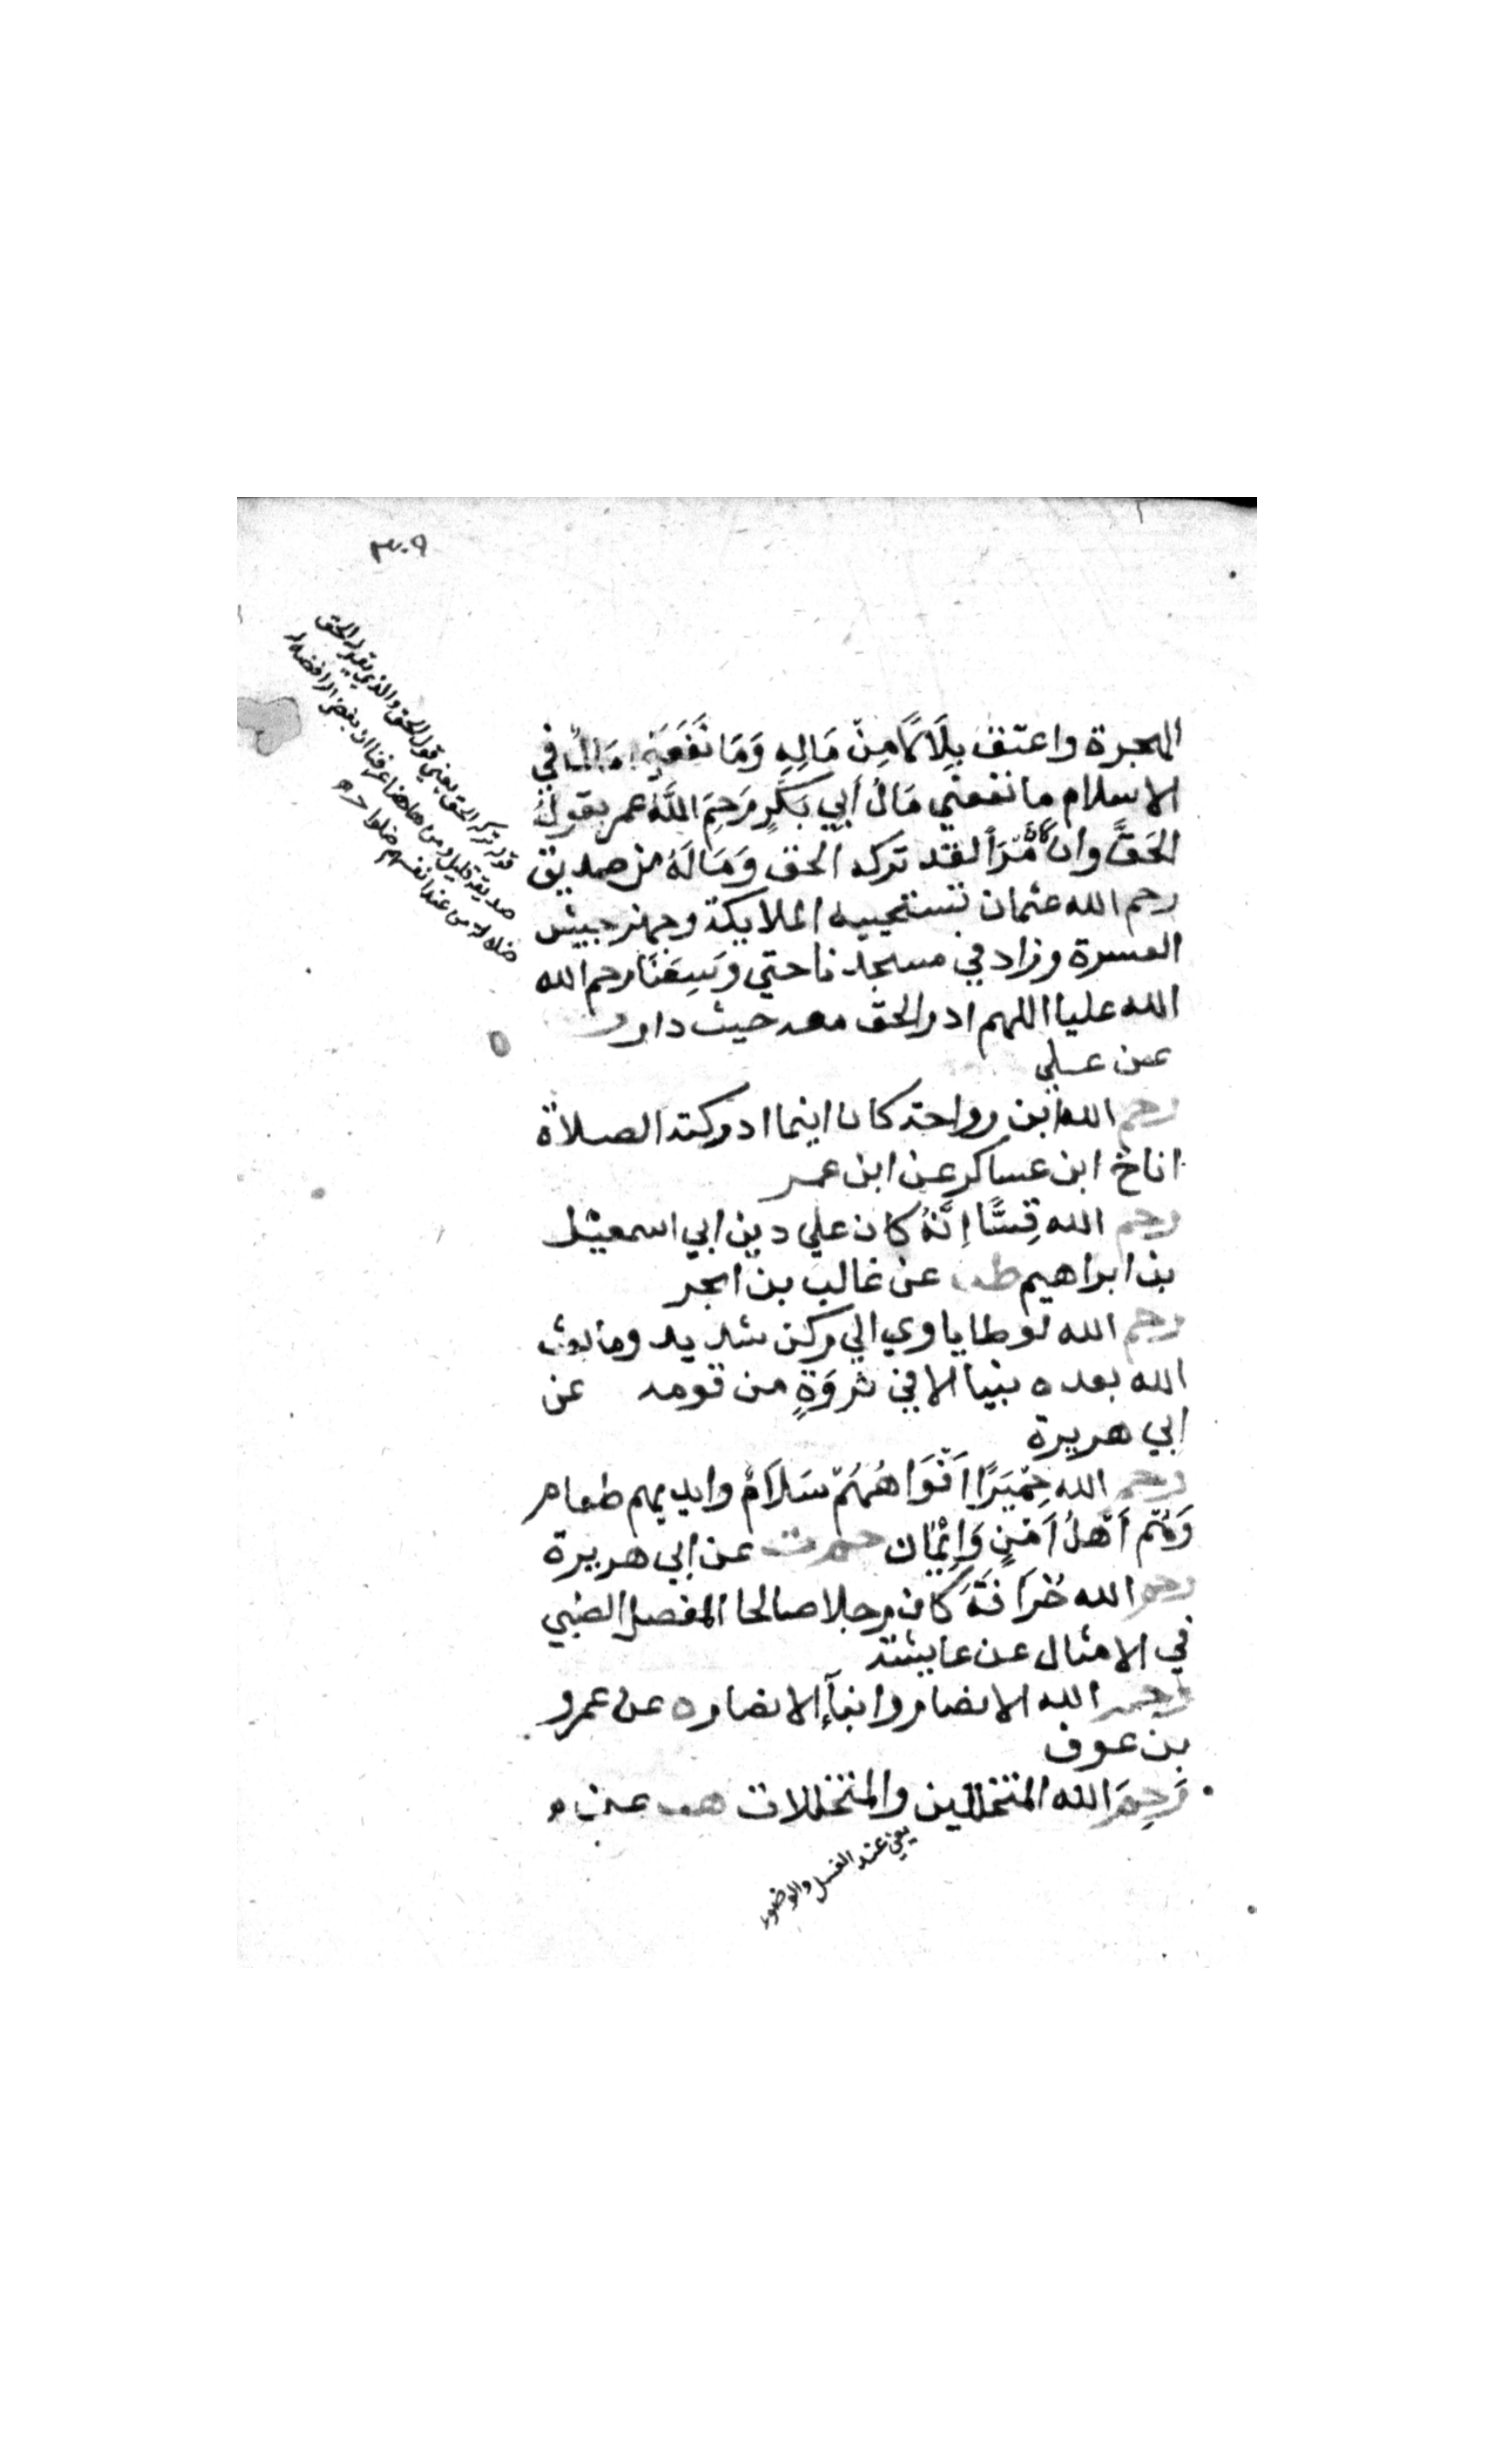 ٣٠٩
الهجرة واعتق بِلَالًا مِنْ مَالِهِ وَمَا نَفَعَنِي مَالٌ في
الاسلام ما نفعني مَالُ أبي بَكْرٍ رَحِمَ اللَّهُ عمر يقولُ
الحَقَّ وان كان مُرًّا لقد تركه الحق وَمَا لَهُ من صديق
رحم الله عثمان تستحييه الملايكة وجهز جيش
العسرة وزاد في مسجدنا حتي وَسِعَنَا رحم الله
الله عليا اللهم ادر الحق معه حيث دار
عن علي
رحم الله ابن رواحة كان اينما ادركته الصلاة
اناخ ابن عساكر عن ابن عمر
رحم الله قِسًّا اِنَّهُ كان علي دين ابي اسمعيل
بن ابراهيم طب عن غالب بن ابجر
رحم الله لوطا ياوي الي ركن شديد وما بعث
الله بعده نبيا الا في ثَروَةٍ من قومه عن
ابي هريرة
رحم الله حِمْيَرًا اَفْوَاهُهُمْ سَلَامٌ وايديهم طعام
وَهُمْ أَهْلُ اَمْنٍ وَاِيْمَان حم ت عن ابي هريرة
رحم الله خُرَافَةَ كان رجلا صالحا المفضل الضبي
في الامثال عن عايشة
رحم الله الانصار وابنآء الانصار ه عن عمرو
بن عوف
رَحِمَ الله المتخللين والمتخللات هب عن
يعني عند الغسل والوضوء
قوله تركه الحق يعني قول الحق والذي يقول الحق
صديقه قليل ومن هاهنا عرفنا ان بغض الرافضة له
ضلالة من عند انفسهم ضلوا